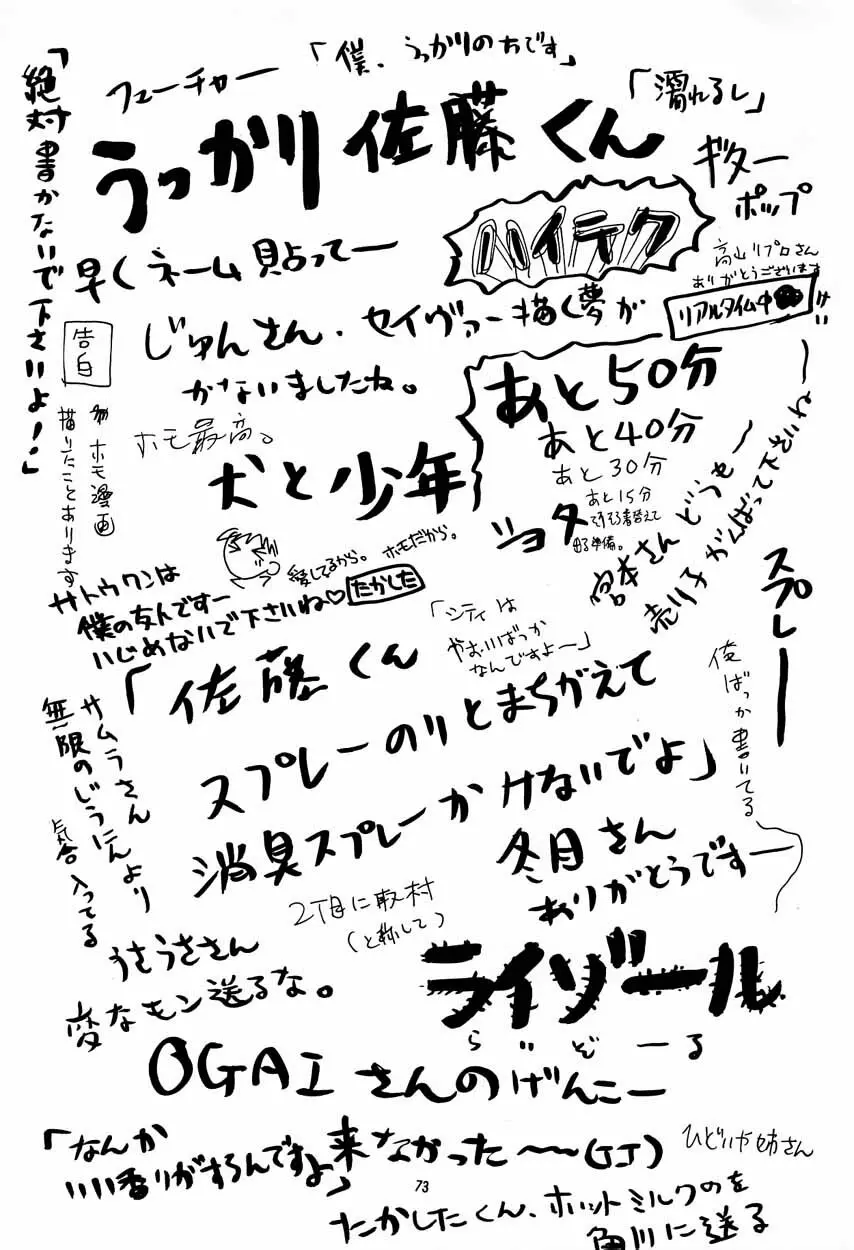 「絶対書かないで下さいよ!」
フューチャー
「僕、うっかりのちです」
「濡れるし」
うっかり佐藤くん
ギター
ポップ
ハイテク
早くネーム貼ってー
高山リプロさん
ありがとうございます
リアルタイム中
じゅんさん、セイヴァー描く夢が
かないましたね。
告白
ホモ漫画
描いたことあります
ホモ最高。
犬と少年
あと50分
あと40分
あと30分
あと15分
そろそろ着替えて
出る準備。
ショタ
宮本さんどうもー
売り子がんばって下さいねー
愛してるから。ホモだから。
サトウクンは
僕の友人ですー
いじめないで下さいね♡
たかした
「シティは
やおいばっか
なんですよー」
スプレー
俺ばっか書いてる
「佐藤くん
スプレーのりとまちがえて
消臭スプレーかけないでよ」
サムラさん
無限のじゅうにんより
気合入ってる
冬月さん
ありがとうですー
2丁目に取材
(と称して)
うさうささん
変なモン送るな。
ライゾール
らいぞーる
OGAIさんのげんこー
来なかった〜〜(GJ)
「なんか
いい香りがするんですよ」
ひどいや姉さん
73
たかしたくん、ホットミルクのを
角川に送る